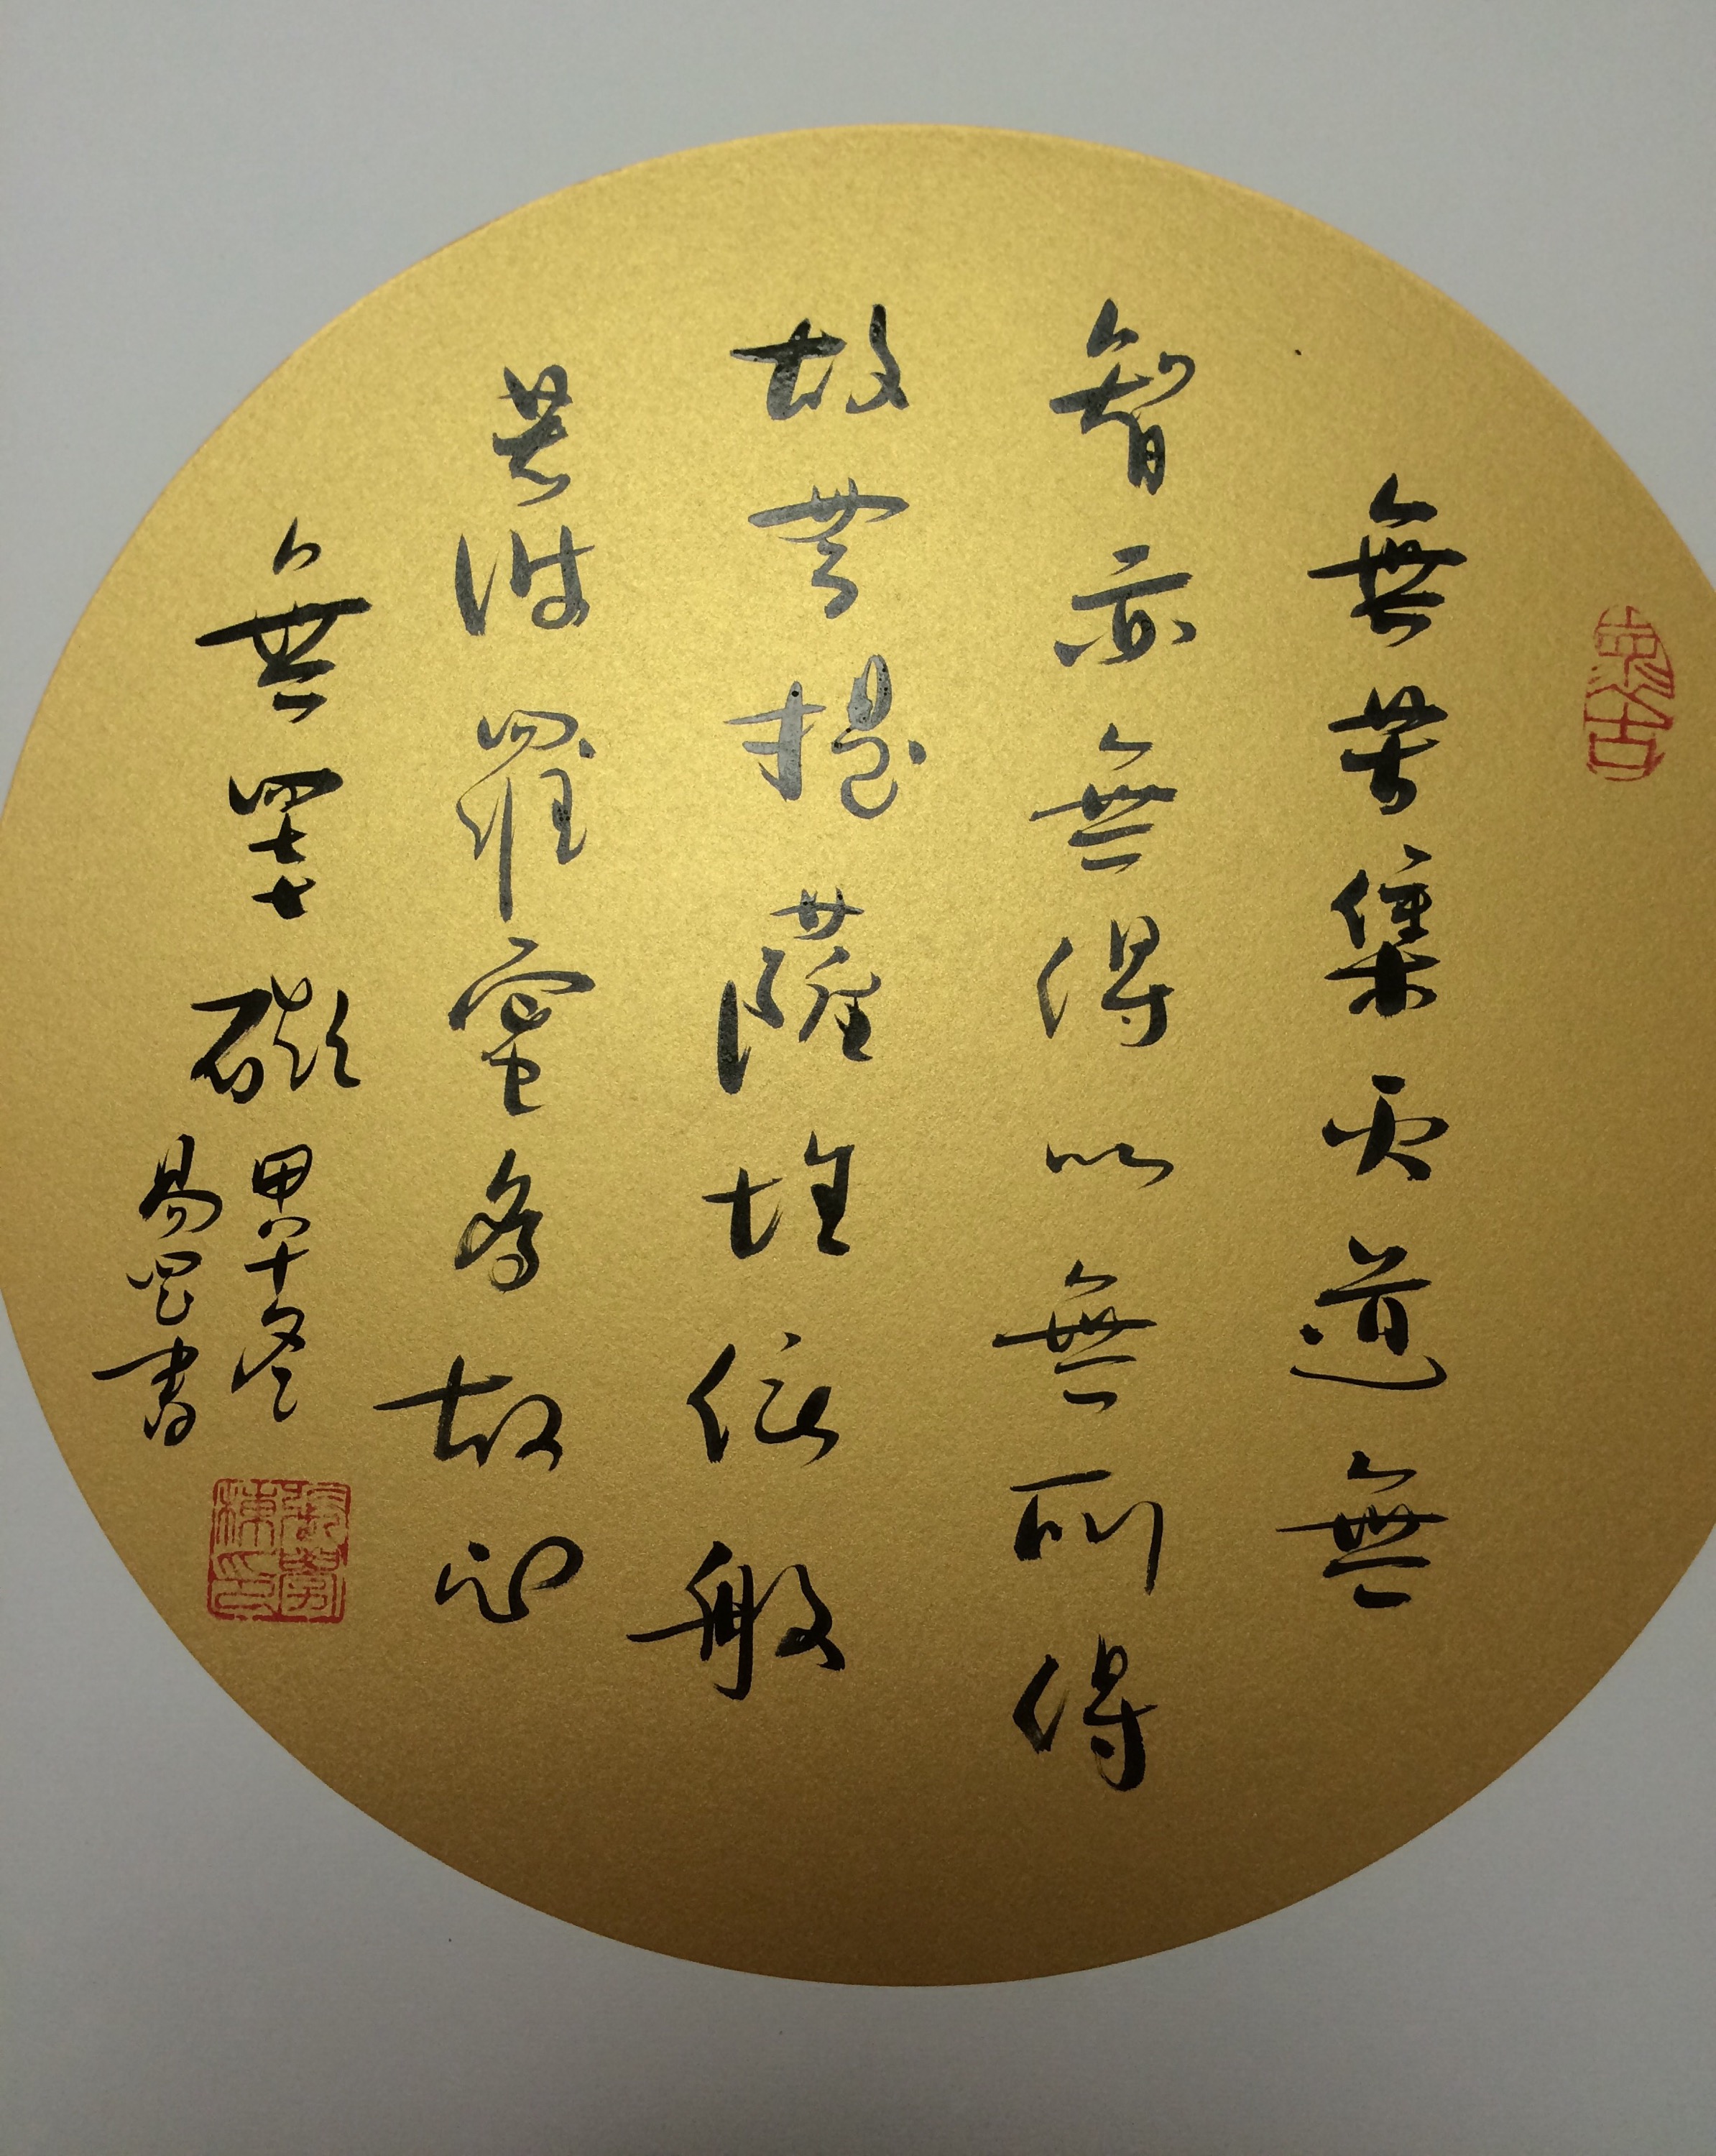 無苦集滅道無
智亦無得以無所得
故菩提薩埵依般
若波羅蜜多故心
無罣礙
甲午冬
易罡書